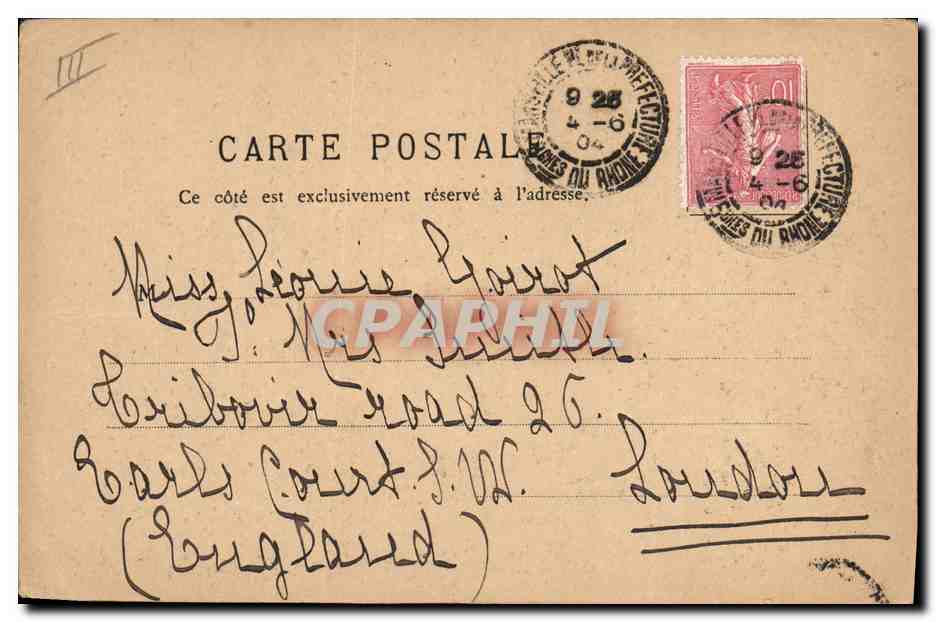 III
MARSEILLE PL. DE LA PREFECTURE
9 25
4 -6
04
BCHES DU RHONE
10
9 25
4 -6
PREFECTURE
BCHES DU RHONE
CARTE POSTALE
Ce côté est exclusivement réservé à l'adresse.
Miss Léonie Goirot
Mrs Smith.
CPAPHIL
Tribovir road 26.
Earls Court S.W. London
(England)